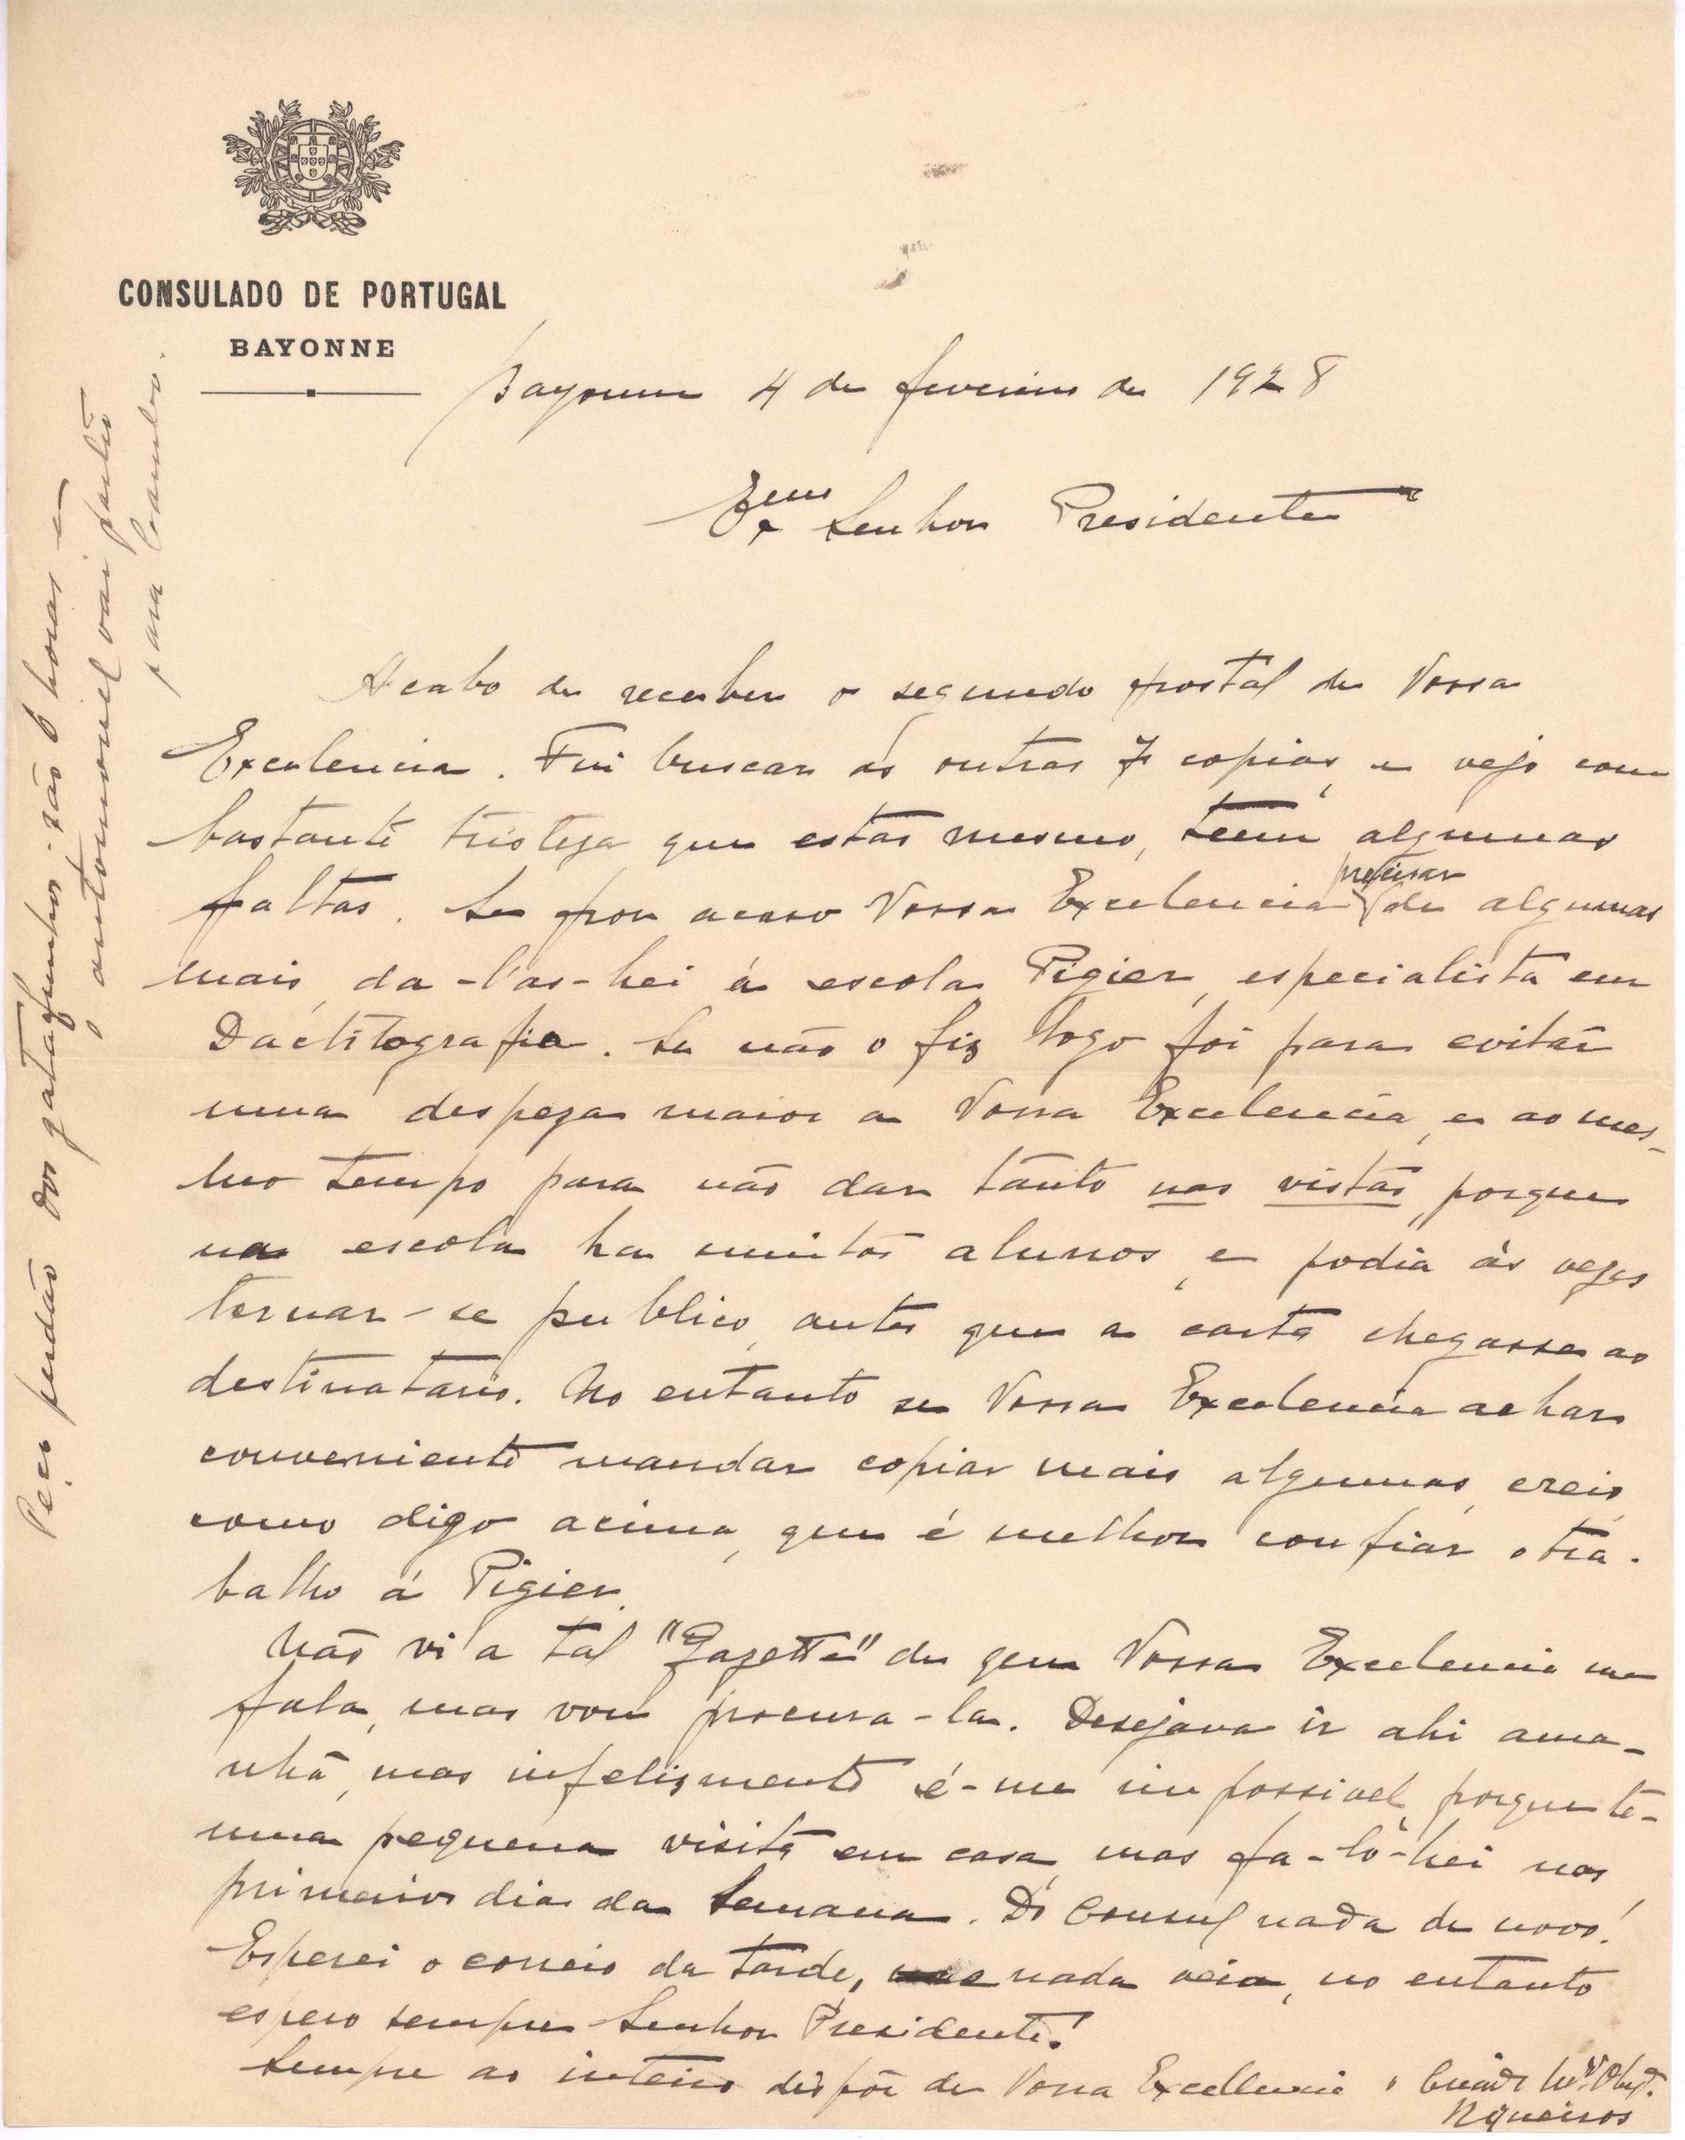 CONSULADO DE PORTUGAL
BAYONNE
Bayonne 4 de fevereiro de 1928
Exmo Senhor Presidente
Acabo de receber o segundo postal de Vossa
Excelencia. Fui buscar as outras 7 copias, e vejo com
bastante tristeza que estas mesmo, teem algumas
faltas. Se por acaso Vossa Excelencia precisar de algumas
mais, da-l'as-hei á escola Pigier, especialista em
Dactilografia. Se não o fiz logo foi para evitar
uma despeza maior a Vossa Excelencia, e ao mes-
mo tempo para não dar tanto nas vistas, porque
na escola ha muitos alunos, e podia ás vezes
tornar-se publico, antes que a carta chegasse ao
destinatario. No entanto se Vossa Excelencia achar
conveniente mandar copiar mais algumas, creio,
como digo acima, que é melhor confiar o tra-
balho á Pigier.
Não vi a tal "Gazette" de que Vossa Excelencia me
fala, mas vou procura-la. Desejava ir ahi ama-
nhã, mas infelizmente é-me impossivel, porque te-
uma pequena visita em casa, mas fa-lo-hei nos
primeiros dias da semana. Do Consul nada de novo!
Esperei o correio da tarde, nada veio, no entanto
espero sempre Senhor Presidente!
Sempre ao inteiro dispôr de Vossa Excellencia o Creado Mto Obgdo.
Peço perdão dos gatafunhos: são 6 horas e
o automovel vai partir
para Cambo.